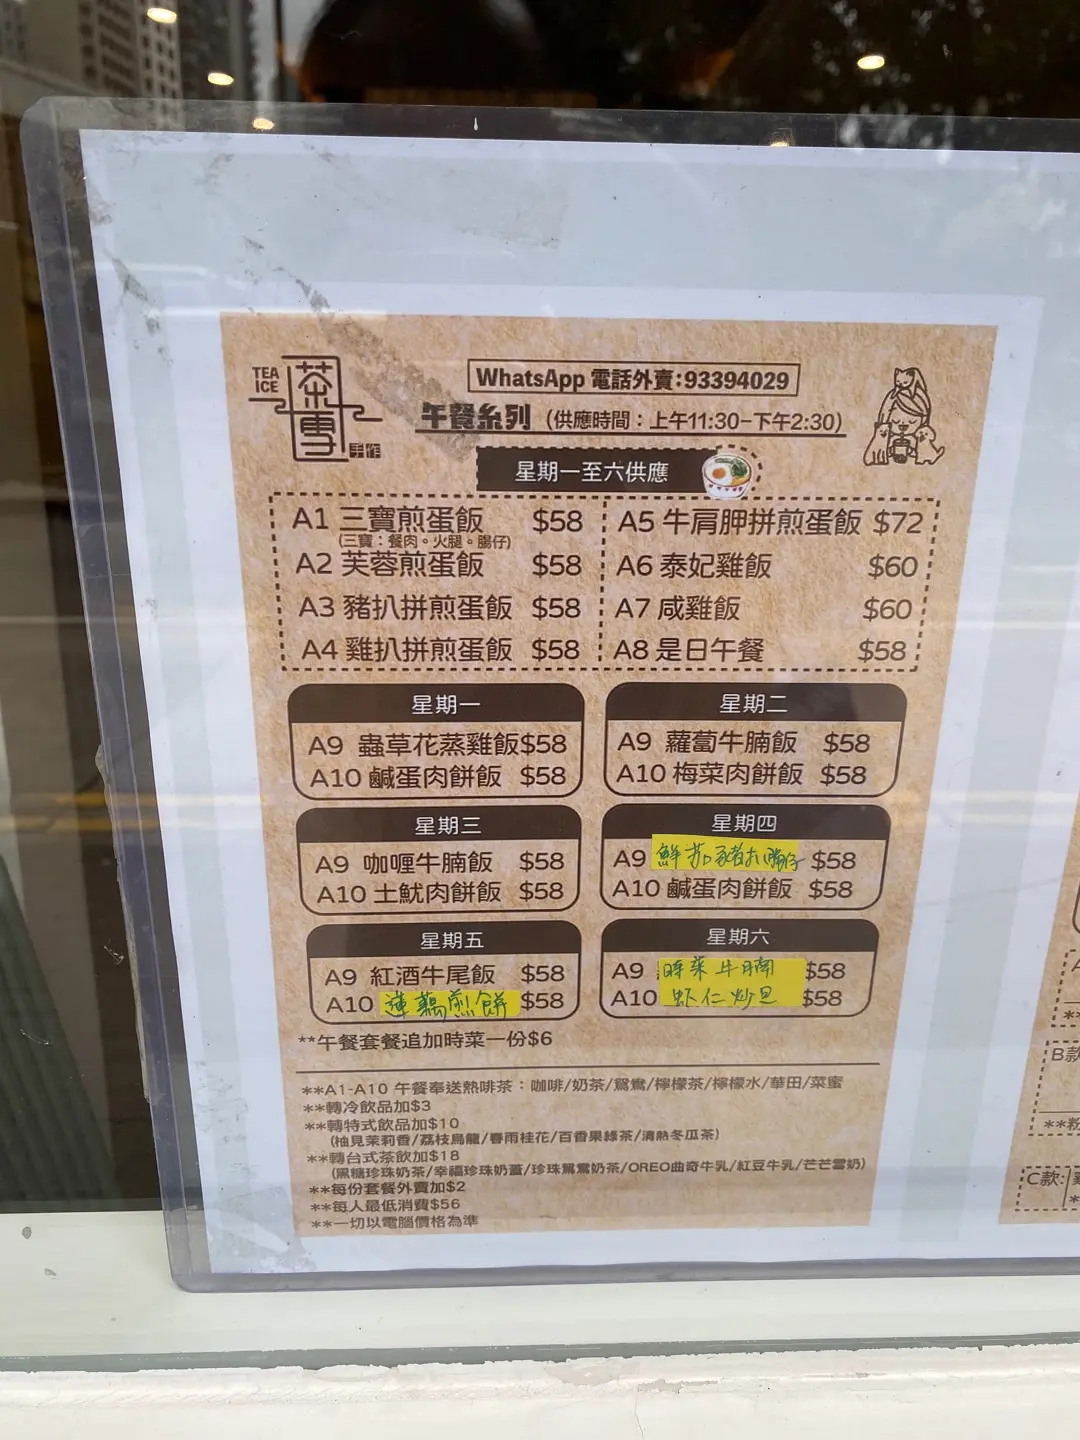 TEA
ICE
茶雪
手作
WhatsApp 電話外賣:93394029
午餐系列(供應時間:上午11:30-下午2:30)
星期一至六供應
A1 三寶煎蛋飯 $58
(三寶:餐肉。火腿。腸仔)
A2 芙蓉煎蛋飯 $58
A3 豬扒拼煎蛋飯 $58
A4 雞扒拼煎蛋飯 $58
A5 牛肩胛拼煎蛋飯 $72
A6 泰妃雞飯 $60
A7 咸雞飯 $60
A8 是日午餐 $58
星期一
A9 蟲草花蒸雞飯$58
A10 鹹蛋肉餅飯 $58
星期二
A9 蘿蔔牛腩飯 $58
A10 梅菜肉餅飯 $58
星期三
A9 咖喱牛腩飯 $58
A10 土魷肉餅飯 $58
星期四
A9 鮮茄豬扒腸仔 $58
A10 鹹蛋肉餅飯 $58
星期五
A9 紅酒牛尾飯 $58
A10 蓮藕煎餅 $58
星期六
A9 時菜牛腩 $58
A10 虾仁炒旦 $58
**午餐套餐追加時菜一份$6
**A1-A10 午餐奉送熱啡茶:咖啡/奶茶/鴛鴦/檸檬茶/檸檬水/華田/菜蜜
**轉冷飲品加$3
**轉特式飲品加$10
(柚見茉莉香/荔枝烏龍/春雨桂花/百香果綠茶/清熱冬瓜茶)
**轉台式茶飲加$18
(黑糖珍珠奶茶/幸福珍珠奶蓋/珍珠鴛鴦奶茶/OREO曲奇牛乳/紅豆牛乳/芒芒雪奶)
**每份套餐外賣加$2
**每人最低消費$56
**一切以電腦價格為準
A
**
B款
**粉
C款: